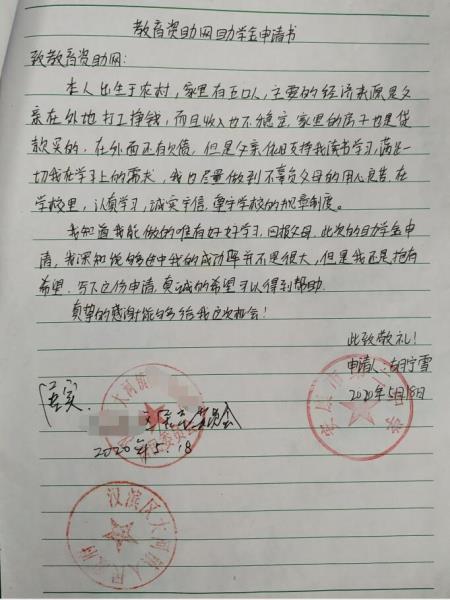 教育资助网助学金申请书
致教育资助网:
本人出生于农村,家里有五口人,主要的经济来源是父
亲在外地打工挣钱,而且收入也不稳定,家里的房子也是贷
款买的,在外面还有欠债,但是父亲依旧支持我读书学习,满足一
切我在学习上的需求,我也尽量做到不辜负父母的用心良苦,在
学校里,认真学习,诚实守信,遵守学校的规章制度。
我知道我能做的唯有好好学习,回报父母,此次的助学金申
请,我深知能够选中我的成功率并不是很大,但是我还是抱有
希望,写下这份申请,真诚的希望可以得到帮助.
真挚的感谢能够给我这次机会!
此致敬礼!
申请人:胡宁雪
2020年5月18日
属实.
委员会
2020年5.18
大河镇
汉滨区大河镇人民政府